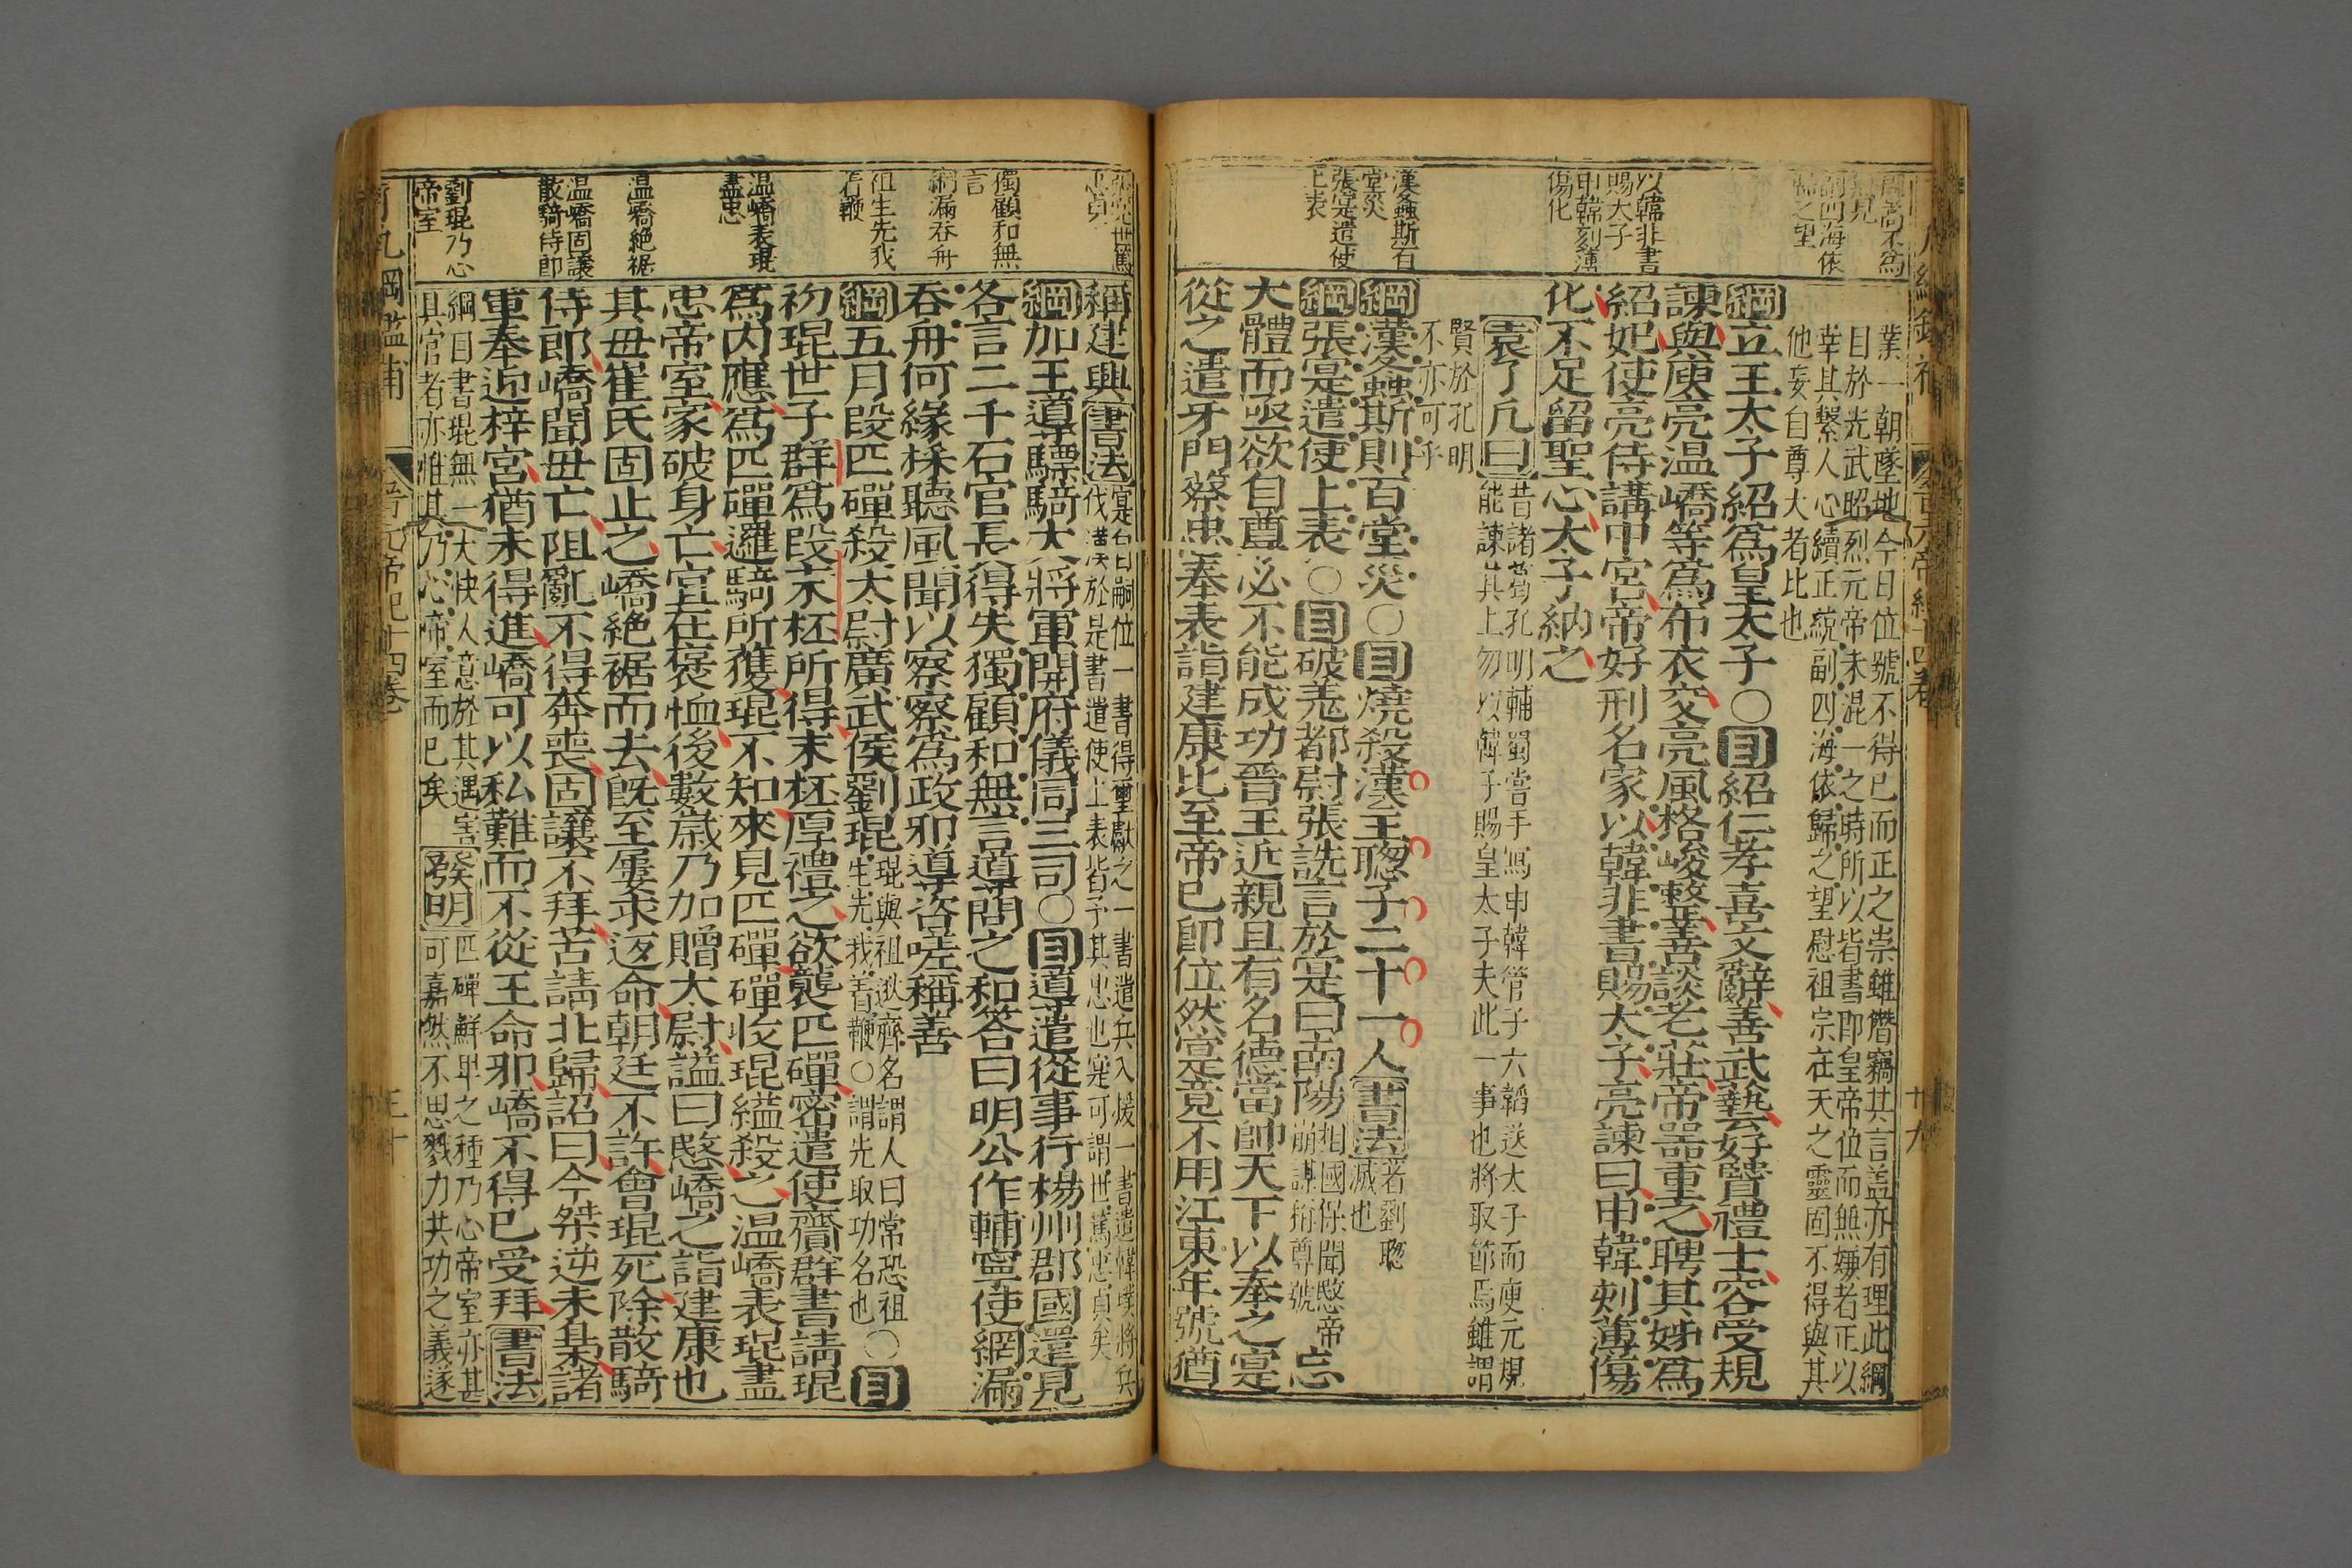 業一朝墜地今日位號不得已而正之崇雖僭竊其言蓋亦有理此綱
目於光武昭烈元帝未混一之時所以皆書即皇帝位而無嫌者正以
幸其繫人心續正統副四海依歸之望慰祖宗在天之靈固不得與其
他妄自尊大者比也
綱立王太子紹爲皇太子○目紹仁孝喜文辭善武藝好賢禮士容受規
諫與庾亮溫嶠等爲布衣交亮風格峻整善談老莊帝器重之聘其姊爲
紹妃使亮侍講中宮帝好刑名家以韓非書賜太子亮諫曰申韓刻薄傷
化不足留聖心太子納之
以韓非書
賜太子
申韓刻薄
傷化
袁了凡曰
昔諸葛孔明輔蜀嘗手寫申韓管子六韜送太子而庾元規
能諫其上勿以韓子賜皇太子夫此一事也將取節焉雖謂
賢於孔明
不亦可乎
漢螽斯百
堂災
綱漢螽斯則百堂災○目燒殺漢王聰子二十一人書法
著劉聰
滅也
張寔遣使
上表
綱張寔遣使上表○目破羌都尉張詵言於寔曰南陽
相國保聞愍帝
崩謀稱尊號
忘
大體而亟欲自尊必不能成功晉王近親且有名德當帥天下以奉之寔
從之遣牙門蔡忠奉表詣建康比至帝已即位然寔竟不用江東年號猶
稱建興書法
寔自嗣位一書得璽獻之一書遣兵入援一書遣韓璞將兵
伐漢於是書遣使上表皆予其忠也寔可謂世篤忠貞矣
綱加王導驃騎大將軍開府儀同三司○目導遣從事行楊州郡國還見
獨顧和無
言
各言二千石官長得失獨顧和無言導問之和答曰明公作輔寧使網漏
網漏吞舟
吞舟何緣採聽風聞以察察爲政邪導咨嗟稱善
祖生先我
着鞭
綱五月段匹磾殺太尉廣武侯劉琨
琨與祖逖齊名謂人曰常恐祖
生先我着鞭○謂先取功名也
○目
初琨世子群爲段末柸所得末柸厚禮之欲襲匹磾密遣使齎群書請琨
溫嶠表琨
盡忠
爲內應爲匹磾邏騎所獲琨不知來見匹磾磾收琨縊殺之溫嶠表琨盡
忠帝室家破身亡宜在褒恤後數歲乃加贈大尉謚曰愍嶠之詣建康也
溫嶠絕裾
其母崔氏固止之嶠絕裾而去既至屢求返命朝廷不許會琨死除散騎
溫嶠固讓
散騎侍郎
侍郎嶠聞母亡阻亂不得奔喪固讓不拜苦請北歸詔曰今桀逆未梟諸
軍奉迎梓宮猶未得進嶠可以私難而不從王命邪嶠不得已受拜書法
劉琨乃心
帝室
綱目書琨無一
其官者亦惟其乃心帝室而已矣
發明
匹磾鮮卑之種乃心帝室亦甚
可嘉然不思戮力共功之義遂